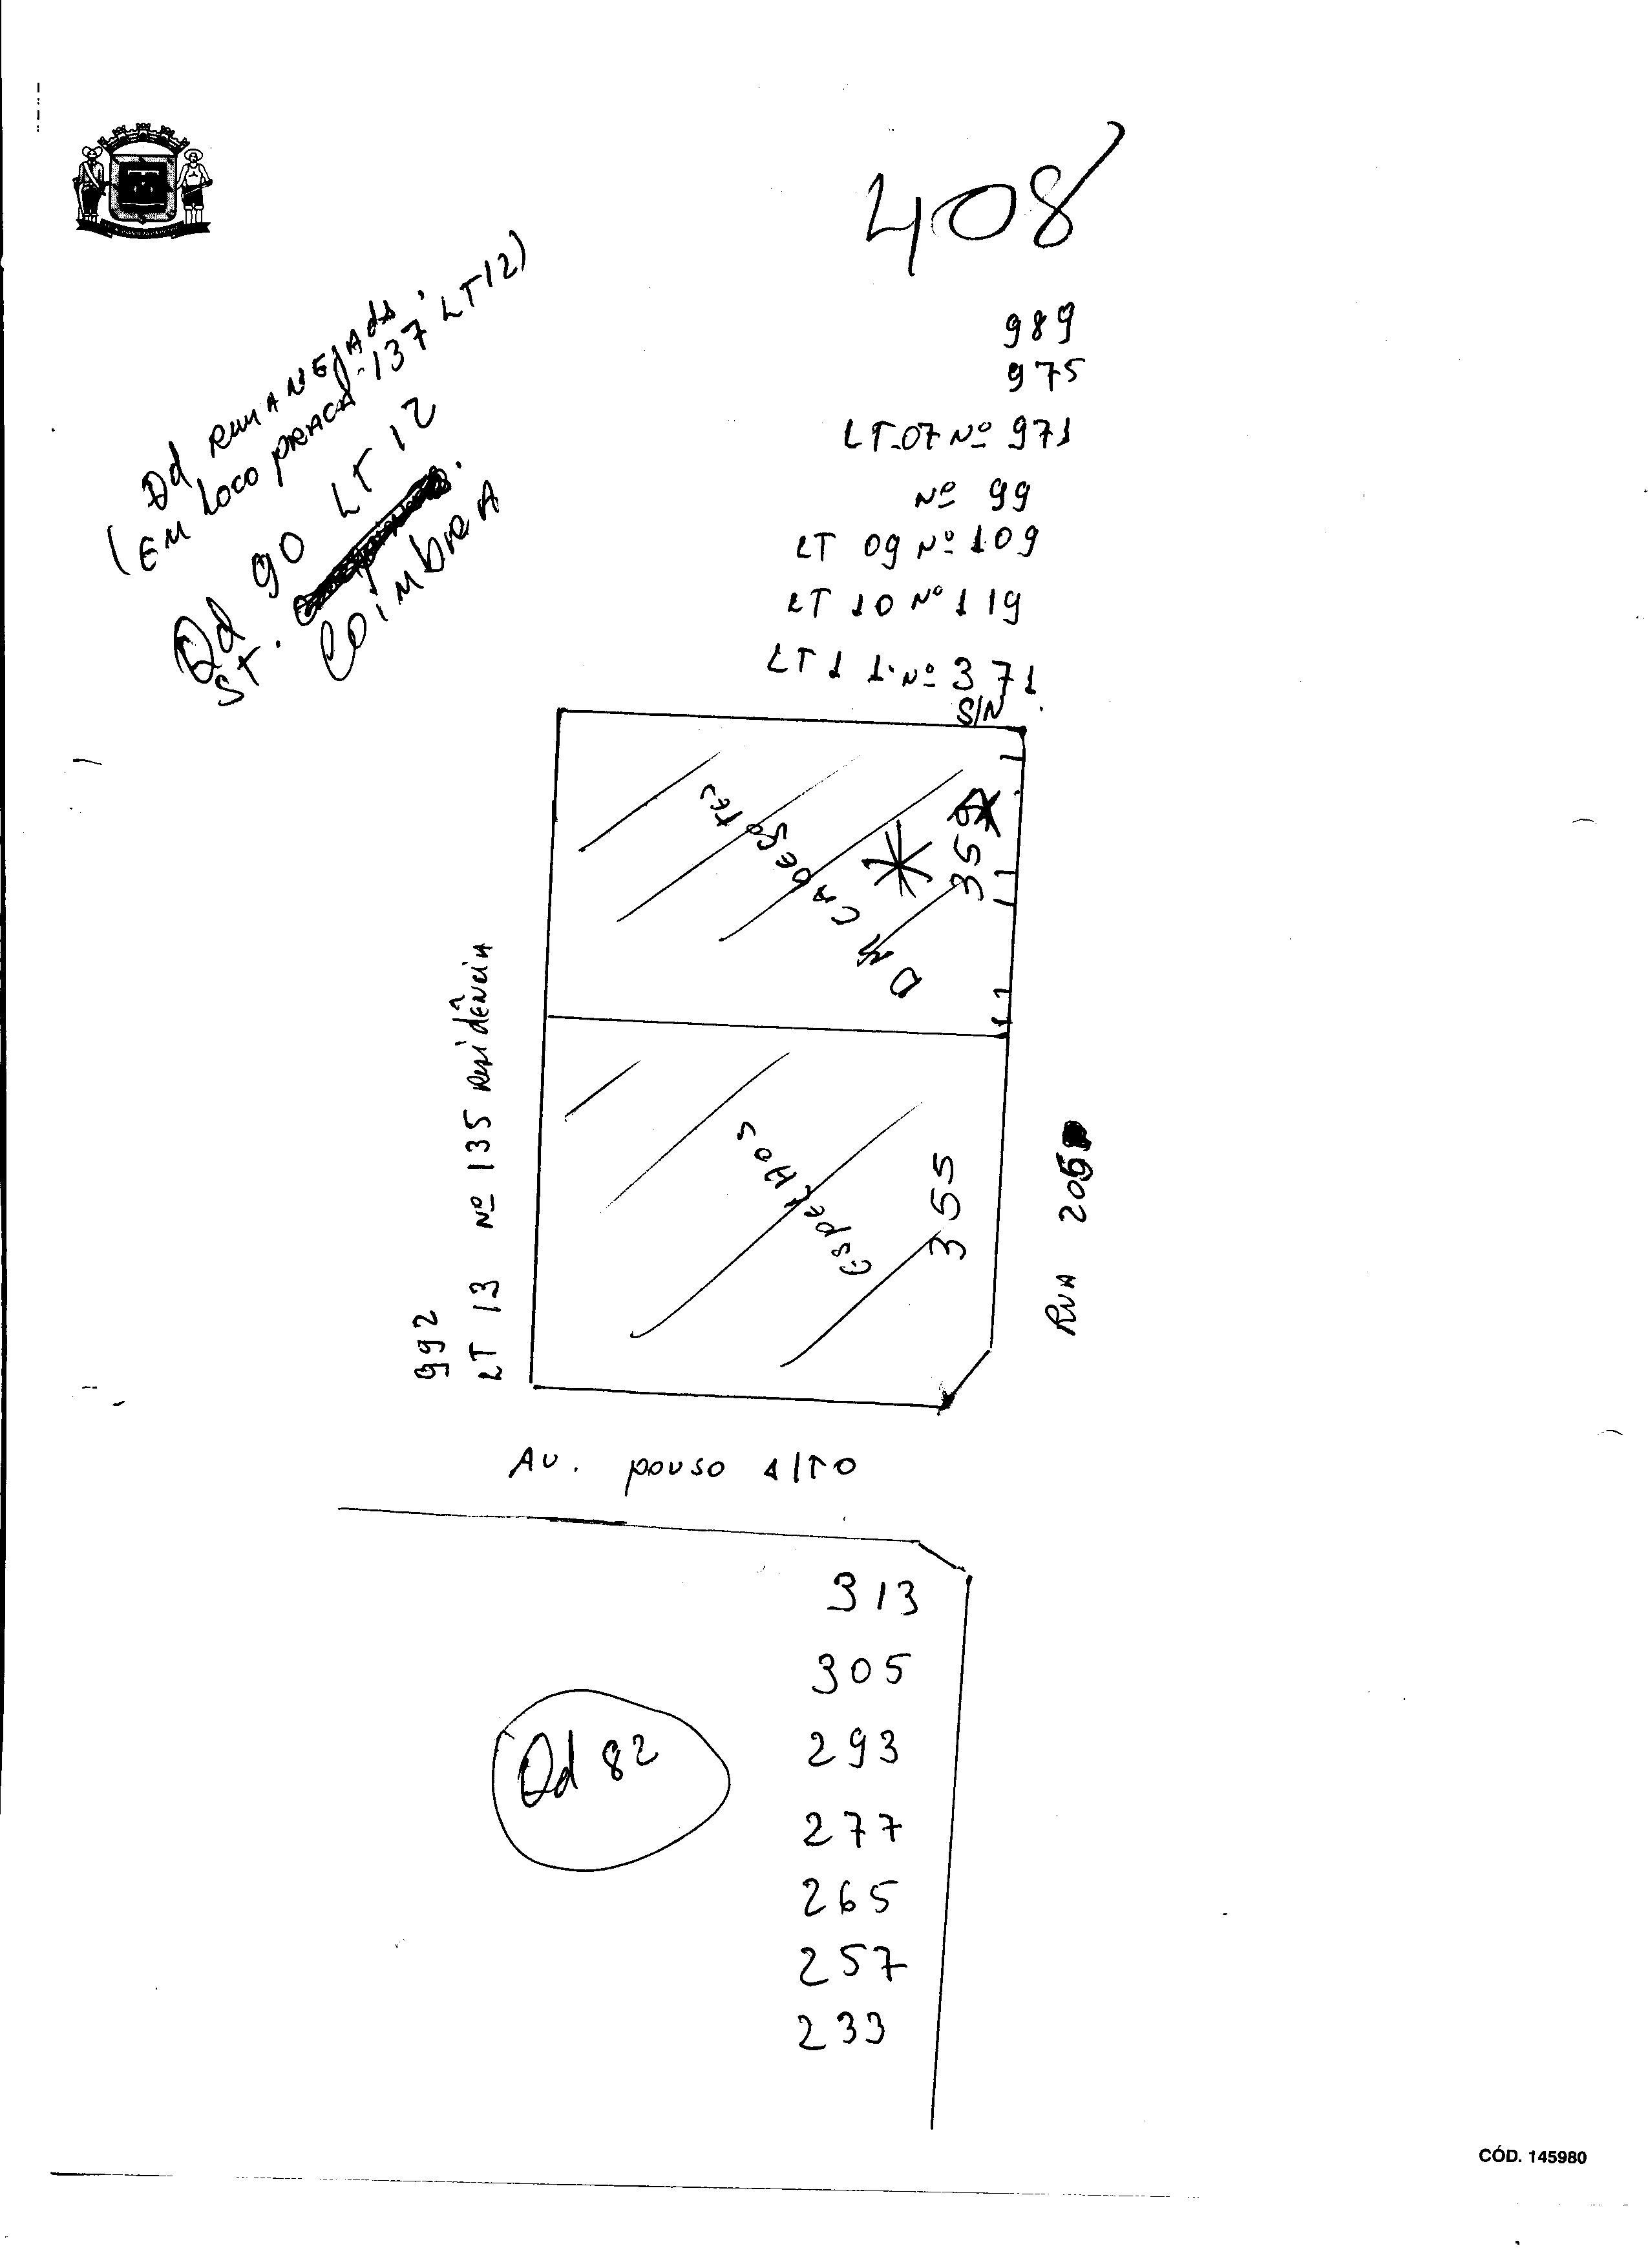 408
989
975
LT-07 Nº 971
Nº 99
LT 09 Nº 109
LT 10 Nº 119
LT 11 Nº 371
S/N
Qd REMANEJADA
(EM LOCO PRACA 137 LT 12)
Qd 90 LT 12
ST.
COIMBRA
CABEÇOTES
355
ESPELHOS
992
LT 13 Nº 135 Residência
RUA
AV. POUSO ALTO
313
305
293
277
265
257
233
Qd 82
CÓD. 145980